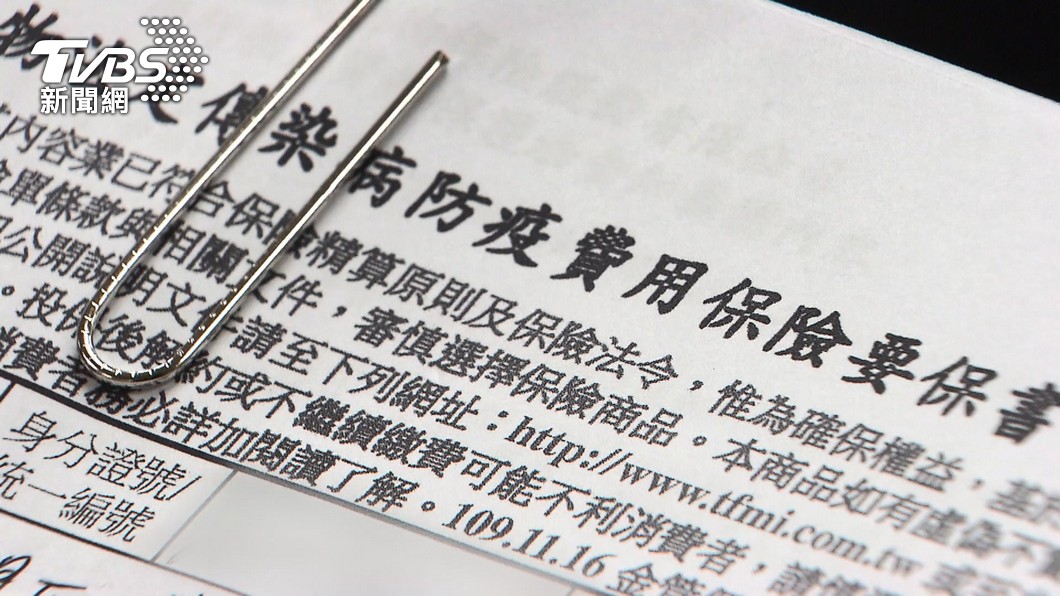 TVBS
新聞網
傳染病防疫費用保險要保書
內容業已符合保險精算原則及保險法令，惟為確保權益，基
單條款與相關文件，審慎選擇保險商品。本商品如有虛偽不
公開說明文件請至下列網址：http://www.tfmi.com.tw
。投保後解約或不繼續繳費可能不利消費者，請
消費者務必詳加閱讀了解。109.11.16 金管
身分證號/
統一編號